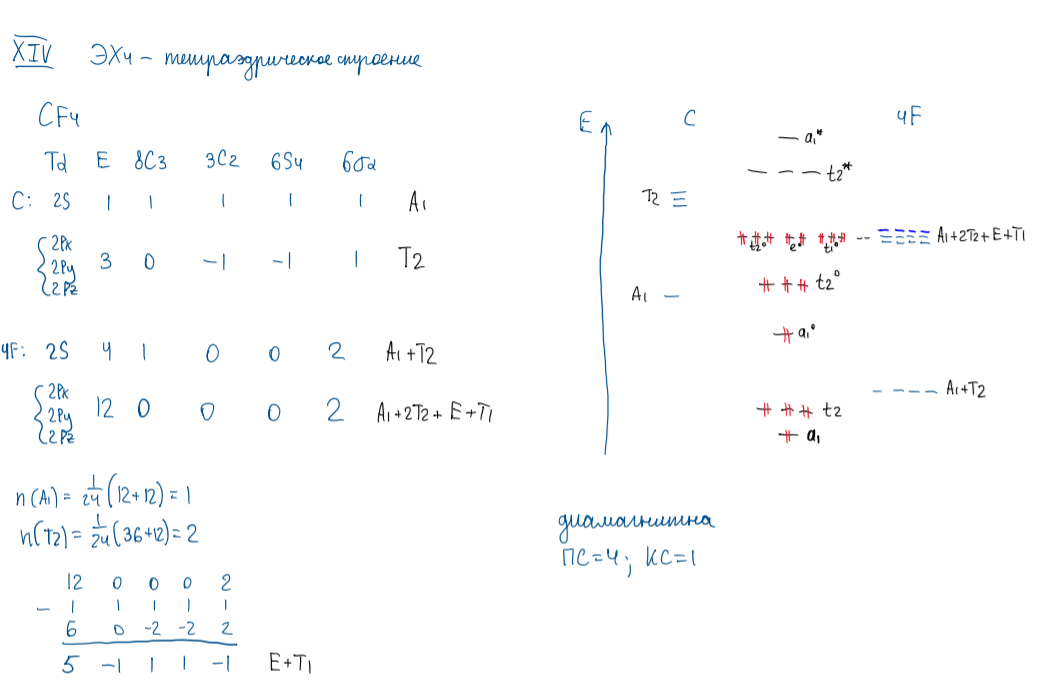 XIV ЭХ4 – тетраэдрическое строение
CF4
Td E 8C3 3C2 6S4 6σd
C: 2S 1 1 1 1 1 A1
2Px
2Py 3 0 -1 -1 1 T2
2Pz
4F: 2S 4 1 0 0 2 A1+T2
2Px
2Py 12 0 0 0 2 A1+2T2+E+T1
2Pz
n(A1) = 1/24 (12+12) = 1
n(T2) = 1/24 (36+12) = 2
12 0 0 0 2
– 1 1 1 1 1
6 0 -2 -2 2
5 -1 1 1 -1 E+T1
E C 4F
a1*
t2*
T2
t2° e° t1° A1+2T2+E+T1
t2°
A1
a1°
A1+T2
t2
a1
диамагнитна
ПС=4; КС=1